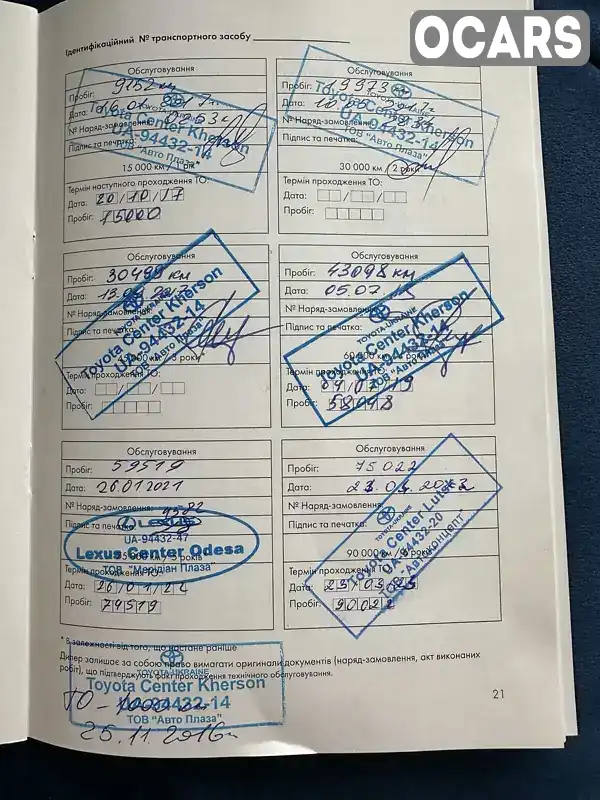 OCARS
Ідентифікаційний № транспортного засобу
Обслуговування
Пробіг: 9152 км
Дата:
№ Наряд-замовлення:
Підпис та печатка:
Toyota Center Kherson
UA-94432-14
ТОВ "Авто Плаза"
15 000 км / 1 рік
Термін наступного проходження ТО:
Дата: 20/10/17
Пробіг: 15000
Обслуговування
Пробіг: 19973
Дата:
№ Наряд-замовлення:
Підпис та печатка:
Toyota Center Kherson
UA-94432-14
ТОВ "Авто Плаза"
30 000 км / 2 роки
Термін проходження ТО:
Дата:
Пробіг:
Обслуговування
Пробіг: 30499 км
Дата:
№ Наряд-замовлення:
Підпис та печатка:
TOYOTA-UKRAINE
Toyota Center Kherson
UA-94432-14
ТОВ "Авто Плаза"
Термін проходження ТО:
Дата:
Пробіг:
Обслуговування
Пробіг: 43098 км
Дата: 05.07
№ Наряд-замовлення:
Підпис та печатка:
TOYOTA-UKRAINE
Toyota Center Kherson
UA-94432-14
ТОВ "Авто Плаза"
Термін проходження ТО:
Дата: 04/07/19
Пробіг: 58048
Обслуговування
Пробіг: 59519
Дата: 26.01.2021
№ Наряд-замовлення:
Підпис та печатка:
LEXUS
UA-94432-47
Lexus Center Odesa
ТОВ "Мерідіан Плаза"
Термін проходження ТО:
Дата: 26/01/22
Пробіг: 74519
Обслуговування
Пробіг: 75022
Дата:
№ Наряд-замовлення:
Підпис та печатка:
TOYOTA-UKRAINE
Toyota Center Lutsk
UA-94432-20
ТОВ "Автоконцепт"
90 000 км
Термін проходження ТО:
Дата: 23/03/23
Пробіг: 90022
* В залежності від того, що настане раніше
Дилер залишає за собою право вимагати оригинали документів (наряд-замовлення, акт виконаних
робіт), що підтверджують факт проходження технічного обслуговування.
TOYOTA-UKRAINE
Toyota Center Kherson
UA-94432-14
ТОВ "Авто Плаза"
ТО - 1000 км
25.11.2016г
21